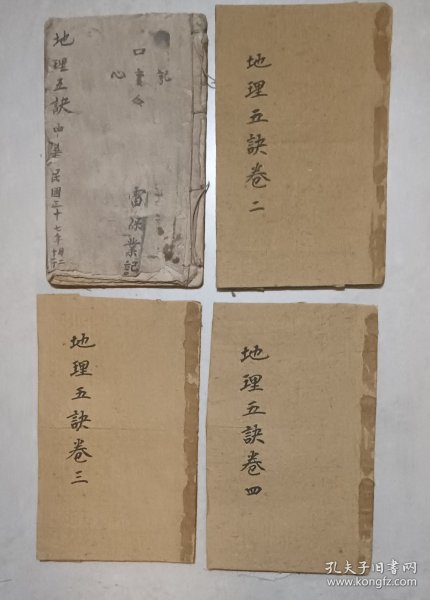 地理五訣
民國三十七年
口
心
記
業記
地理五訣卷二
地理五訣卷三
地理五訣卷四
孔夫子旧书网
www.kongfz.com